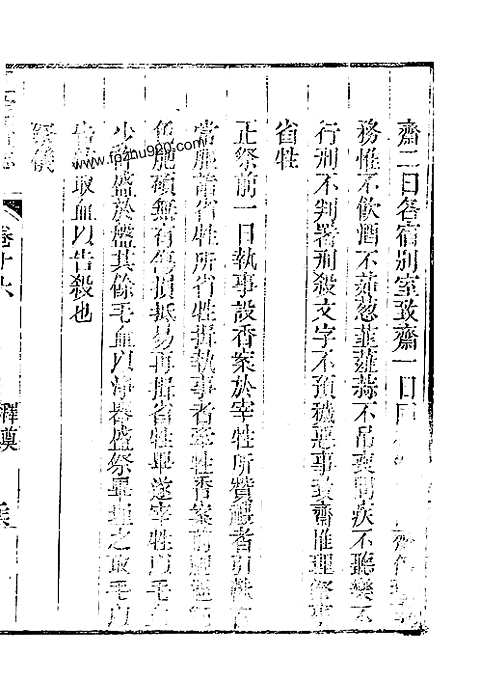 齋二日各宿別室致齋一日同
務惟不飲酒不茹葱韮薤蒜不吊喪問疾不聽樂不
行刑不判署刑殺文字不預穢惡事致齋惟理祭事
省牲
正祭前一日執事設香案於宰牲所贊禮者引獻官
常服詣省牲所省牲揖執事者牽牲香案前
無有傷損
再揖省牲畢遂宰牲以毛血
少許盛於盤其餘毛血以淨器盛祭畢埋之取毛血
取血以告殺也
祭儀
卷十六
釋奠
www.fozhu920.com